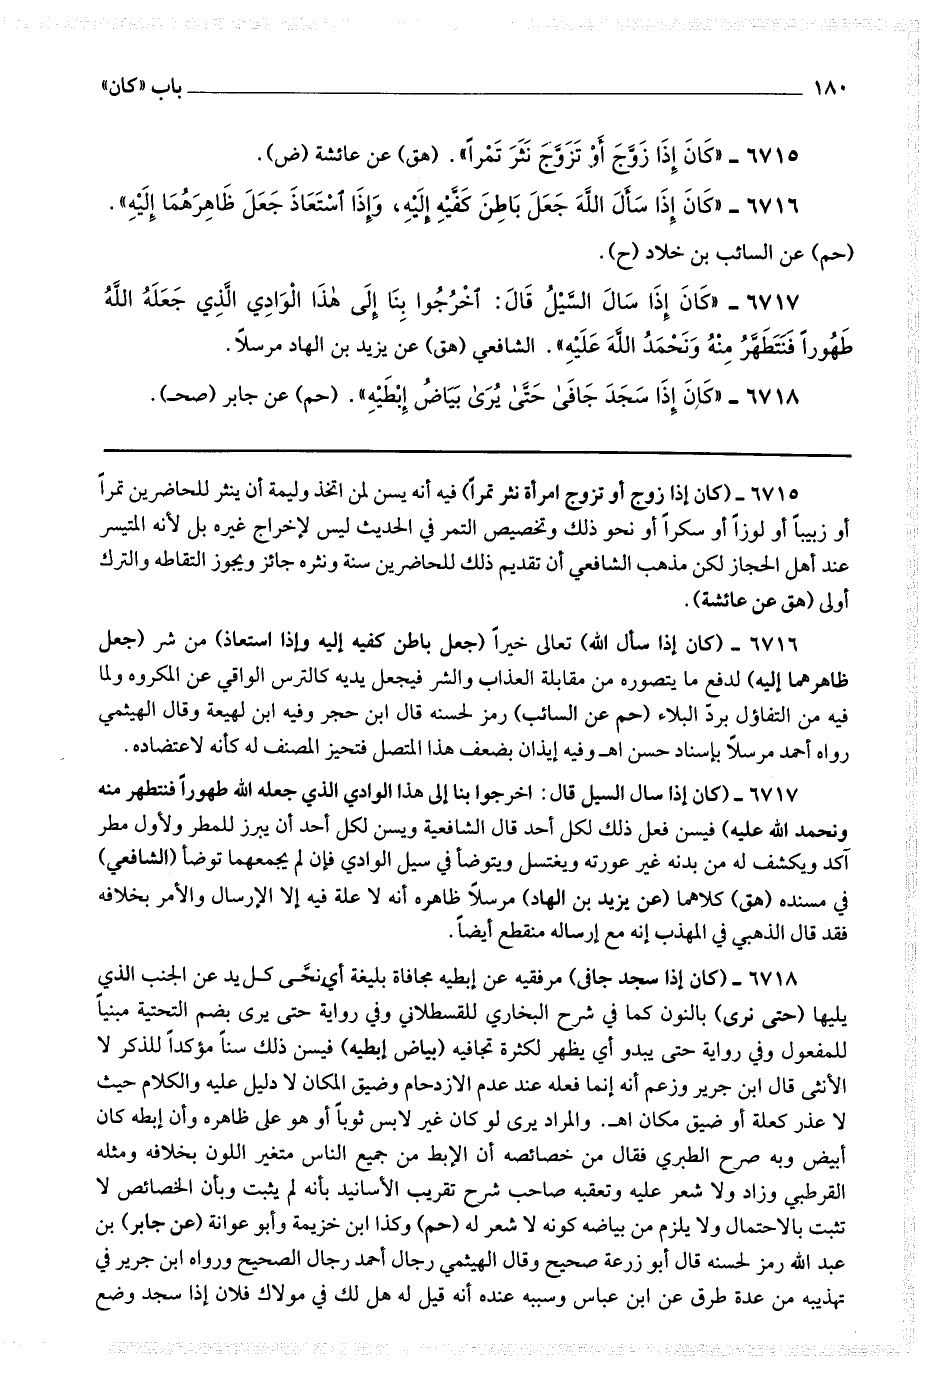 ١٨٠ ــــــ باب «كان»
٦٧١٥ ـ «كَانَ إِذَا زَوَّجَ أَوْ تَزَوَّجَ نَثَرَ تَمْراً». (هق) عن عائشة (ض).
٦٧١٦ ـ «كَانَ إِذَا سَأَلَ اللَّهَ جَعَلَ بَاطِنَ كَفَّيْهِ إِلَيْهِ، وَإِذَا ٱسْتَعَاذَ جَعَلَ ظَاهِرَهُمَا إِلَيْهِ».
(حم) عن السائب بن خلاد (ح).
٦٧١٧ ـ «كَانَ إِذَا سَالَ السَّيْلُ قَالَ: ٱخْرُجُوا بِنَا إِلَى هٰذَا الْوَادِي الَّذِي جَعَلَهُ اللَّهُ
طَهُوراً فَنَتَطَهَّرُ مِنْهُ وَنَحْمَدُ اللَّهَ عَلَيْهِ». الشافعي (هق) عن يزيد بن الهاد مرسلاً.
٦٧١٨ ـ «كَانَ إِذَا سَجَدَ جَافَىٰ حَتَّىٰ يُرَىٰ بَيَاضُ إِبْطَيْهِ». (حم) عن جابر (صحـ).
٦٧١٥ ـ (كان إذا زوج أو تزوج امرأة نثر تمراً) فيه أنه يسن لمن اتخذ وليمة أن ينثر للحاضرين تمراً
أو زبيباً أو لوزاً أو سكراً أو نحو ذلك وتخصيص التمر في الحديث ليس لإخراج غيره بل لأنه المتيسر
عند أهل الحجاز لكن مذهب الشافعي أن تقديم ذلك للحاضرين سنة ونثره جائز ويجوز التقاطه والترك
أولى (هق عن عائشة).
٦٧١٦ ـ (كان إذا سأل الله) تعالى خيراً (جعل باطن كفيه إليه وإذا استعاذ) من شر (جعل
ظاهرهما إليه) لدفع ما يتصوره من مقابلة العذاب والشر فيجعل يديه كالترس الواقي عن المكروه ولما
فيه من التفاؤل بردّ البلاء (حم عن السائب) رمز لحسنه قال ابن حجر وفيه ابن لهيعة وقال الهيثمي
رواه أحمد مرسلاً بإسناد حسن اهـ وفيه إيذان بضعف هذا المتصل فتحيز المصنف له كأنه لاعتضاده.
٦٧١٧ ـ (كان إذا سال السيل قال: اخرجوا بنا إلى هذا الوادي الذي جعله الله طهوراً فنتطهر منه
ونحمد الله عليه) فيسن فعل ذلك لكل أحد قال الشافعية ويسن لكل أحد أن يبرز للمطر ولأول مطر
آكد ويكشف له من بدنه غير عورته ويغتسل ويتوضأ في سيل الوادي فإن لم يجمعهما توضأ (الشافعي)
في مسنده (هق) كلاهما (عن يزيد بن الهاد) مرسلاً ظاهره أنه لا علة فيه إلا الإرسال والأمر بخلافه
فقد قال الذهبي في المهذب إنه مع إرساله منقطع أيضاً.
٦٧١٨ ـ (كان إذا سجد جافى) مرفقيه عن إبطيه مجافاة بليغة أي نحَّى كل يد عن الجنب الذي
يليها (حتى نرى) بالنون كما في شرح البخاري للقسطلاني وفي رواية حتى يرى بضم التحتية مبنياً
للمفعول وفي رواية حتى يبدو أي يظهر لكثرة تجافيه (بياض إبطيه) فيسن ذلك سناً مؤكداً للذكر لا
الأنثى قال ابن جرير وزعم أنه إنما فعله عند عدم الازدحام وضيق المكان لا دليل عليه والكلام حيث
لا عذر كعلة أو ضيق مكان اهـ. والمراد يرى لو كان غير لابس ثوباً أو هو على ظاهره وأن إبطه كان
أبيض وبه صرح الطبري فقال من خصائصه أن الإبط من جميع الناس متغير اللون بخلافه ومثله
القرطبي وزاد ولا شعر عليه وتعقبه صاحب شرح تقريب الأسانيد بأنه لم يثبت وبأن الخصائص لا
تثبت بالاحتمال ولا يلزم من بياضه كونه لا شعر له (حم) وكذا ابن خزيمة وأبو عوانة (عن جابر) بن
عبد الله رمز لحسنه قال أبو زرعة صحيح وقال الهيثمي رجال أحمد رجال الصحيح ورواه ابن جرير في
تهذيبه من عدة طرق عن ابن عباس وسببه عنده أنه قيل له هل لك في مولاك فلان إذا سجد وضع